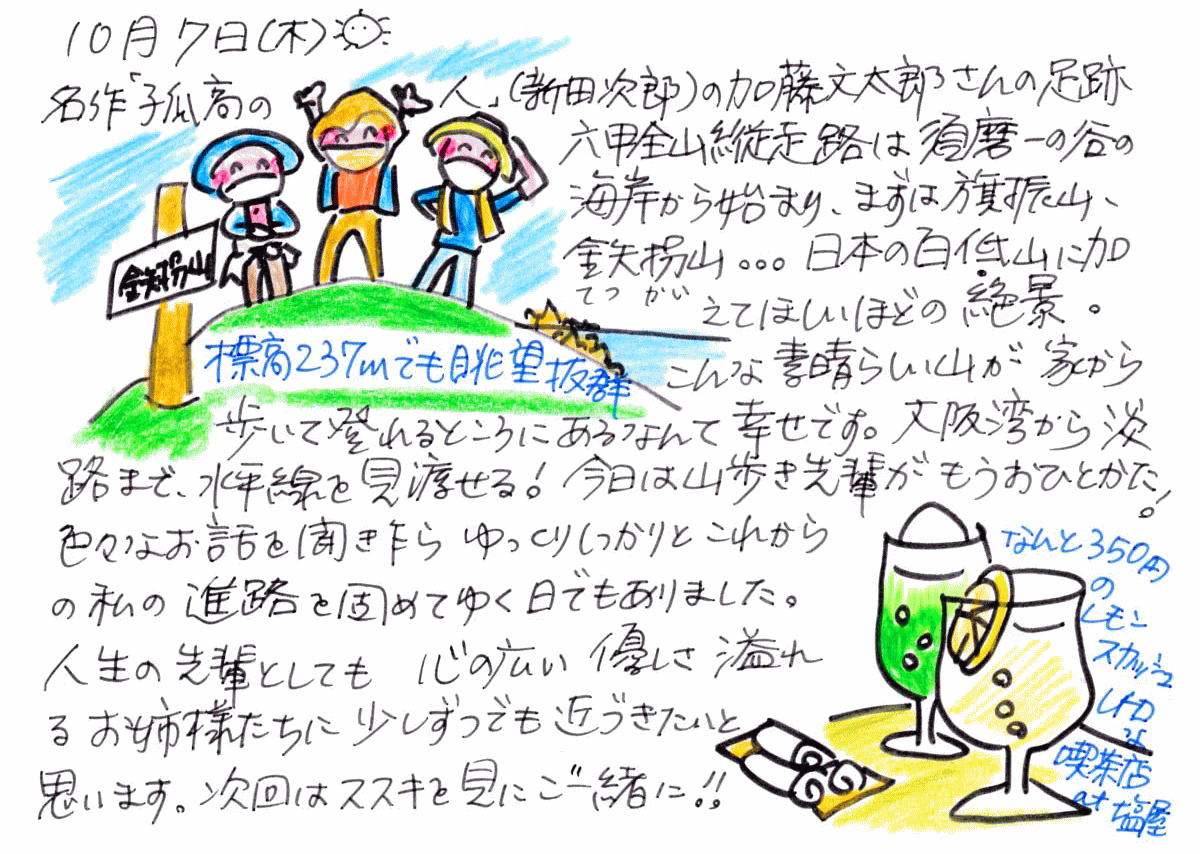 10月7日(木)
名作「孤高の人」(新田次郎)の加藤文太郎さんの足跡
六甲全山縦走路は須磨一の谷の
海岸から始まり、まずは旗振山、
鉄拐山...日本の百低山に加
てつかい
えてほしいほどの絶景。
鉄拐山
標高237mでも眺望抜群
こんな素晴らしい山が家から
歩いて登れるところにあるなんて幸せです。大阪湾から淡
路まで、水平線を見渡せる!今日は山歩き先輩がもうおひとかた!
色々なお話を聞き乍らゆっくりしっかりとこれから
の私の進路を固めてゆく日でもありました。
人生の先輩としても心の広い優しさ溢れ
るお姉様たちに少しずつでも近づきたいと
思います。次回はススキを見にご一緒に!!
なんと350円
の
レモン
スカッシュ
レトロ
な
喫茶店
at 塩屋